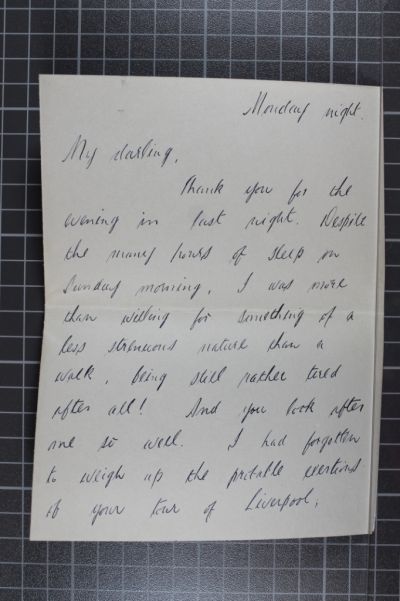 Monday night.
My darling,
Thank you for the
evening in last night. Despite
the many hours of sleep on
Sunday morning, I was more
than willing for something of a
less strenuous nature than a
walk, being still rather tired
after all! And you look after
me so well. I had forgotten
to weigh up the probable exertions
of your tour of Liverpool,